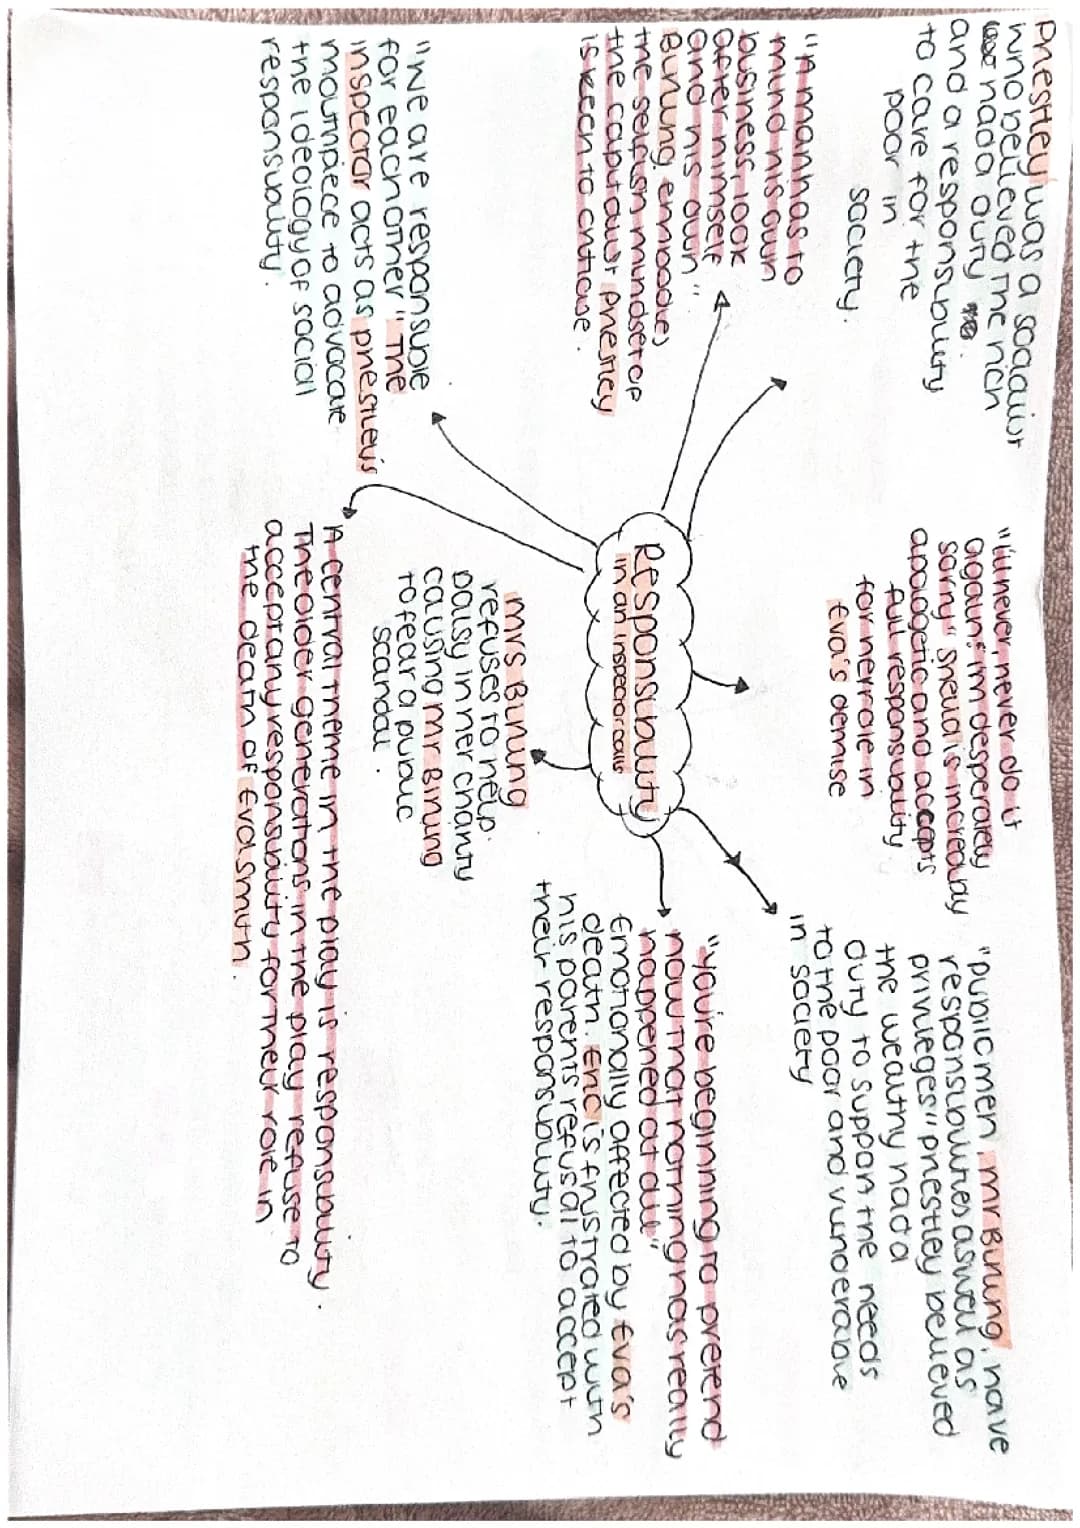 Priestley was a socialist
who believed the rich
had a duty
and a responsibility
to care for the
poor in
society.
"I'll never, never do it
again, im desperately
sorry" sheila is increadibly
apologetic and accepts
full responsibility
for her role in
Eva's demise
"public men, mr Birling, have
responsibilities aswell as
privileges" priestley believed
the wealthy had a
duty to support the needs
to the poor and vunderable
in society
"A man has to
mind his own
business, look
after himself
and his own"
Birling embodies
the selfish mindset of
the capitalist priestley
is keen to criticise.
Responsibility
in an inspector calls
"You're beginning to pretend
now that nothing has really
happened at all"
Emotionally affected by Eva's
death. Eric is frustrated with
his parents refusal to accept
their responsibility.
"We are responsible
for each other" The
inspector acts as priestley's
mouthpiece to advocate
the ideology of social
responsibility.
Mrs Birling
refuses to help
daisy in her charity
causing mr Birling
to fear a public
scandal.
A central theme in the play is responsibility.
The older generations in the play refuse to
accept any responsibility for their role in
the death of Eva Smith.